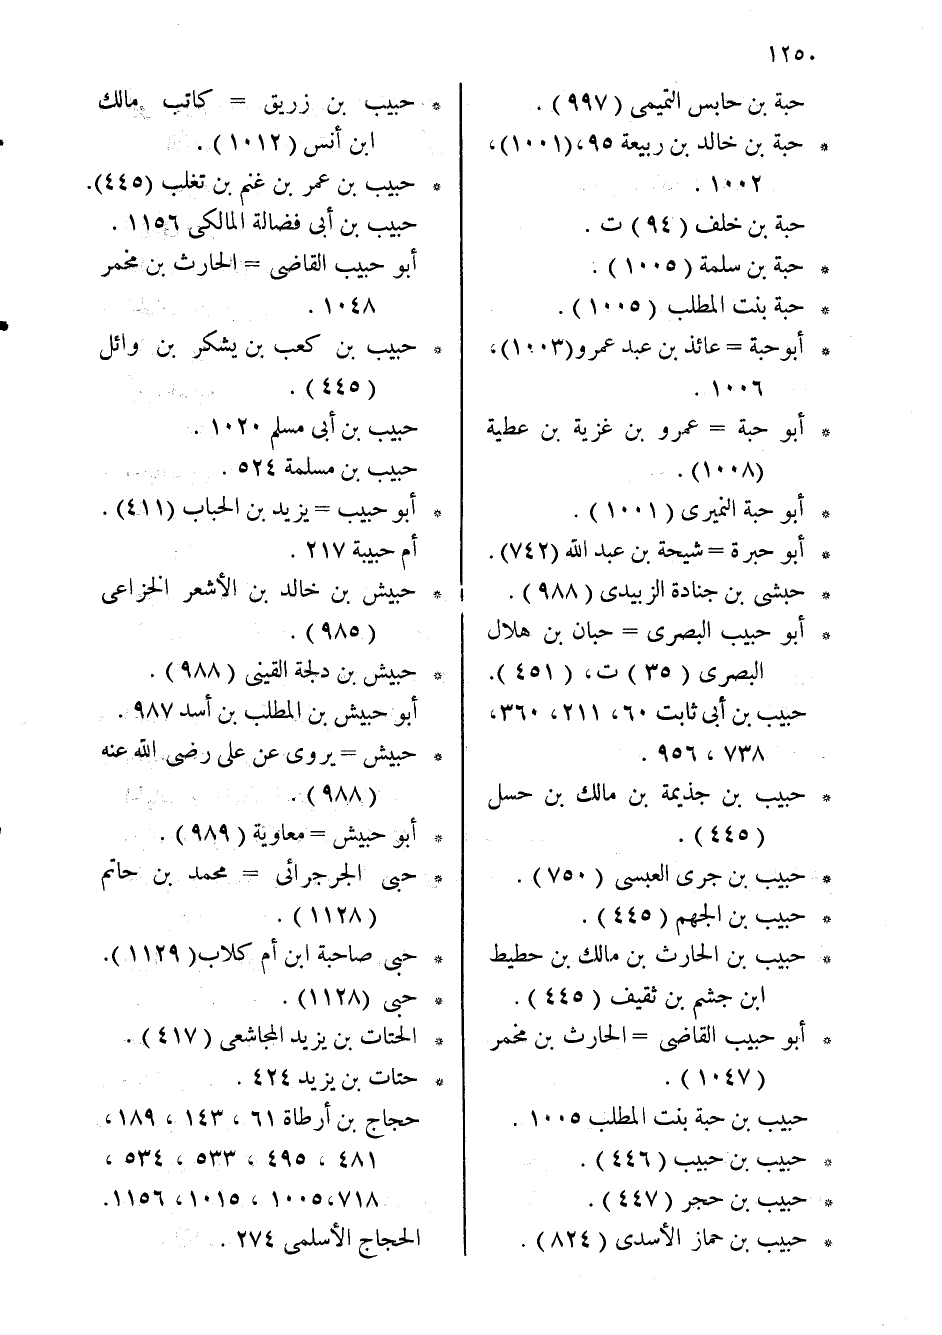 ١٢٥٠
حبة بن حابس التميمى ( ٩٩٧ ) .
* حبة بن خالد بن ربيعة ٩٥، (١٠٠١)،
١٠٠٢ .
حبة بن خلف ( ٩٤ ) ت .
* حبة بن سلمة ( ١٠٠٥ ) .
* حبة بنت المطلب ( ١٠٠٥ ) .
* أبو حبة = عائذ بن عبد عمرو (١٠٠٣)،
١٠٠٦ .
* أبو حبة = عمرو بن غزية بن عطية
(١٠٠٨) .
* أبو حبة النميرى ( ١٠٠١ ) .
* أبو حبرة = شيحة بن عبد الله (٧٤٢) .
* حبشى بن جنادة الزبيدى ( ٩٨٨ ) .
* أبو حبيب البصرى = حبان بن هلال
البصرى ( ٣٥ ) ت ، ( ٤٥١ ) .
حبيب بن أبى ثابت ٦٠ ، ٢١١ ، ٣٦٠ ،
٧٣٨ ، ٩٥٦ .
* حبيب بن جذيمة بن مالك بن حسل
( ٤٤٥ ) .
* حبيب بن جرى العبسى ( ٧٥٠ ) .
* حبيب بن الجهم ( ٤٤٥ ) .
* حبيب بن الحارث بن مالك بن حطيط
ابن جشم بن ثقيف ( ٤٤٥ ) .
* أبو حبيب القاضى = الحارث بن مخمر
( ١٠٤٧ ) .
حبيب بن حبة بنت المطلب ١٠٠٥ .
* حبيب بن حبيب ( ٤٤٦ ) .
* حبيب بن حجر ( ٤٤٧ ) .
* حبيب بن حماز الأسدى ( ٨٢٤ ) .
* حبيب بن زريق = كاتب مالك
ابن أنس ( ١٠١٢ ) .
* حبيب بن عمر بن غنم بن تغلب (٤٤٥) .
حبيب بن أبى فضالة المالكى ١١٥٦ .
أبو حبيب القاضى = الحارث بن مخمر
١٠٤٨ .
* حبيب بن كعب بن يشكر بن وائل
( ٤٤٥ ) .
حبيب بن أبى مسلم ١٠٢٠ .
حبيب بن مسلمة ٥٢٤ .
* أبو حبيب = يزيد بن الحباب (٤١١) .
أم حبيبة ٢١٧ .
* حبيش بن خالد بن الأشعر الخزاعى
( ٩٨٥ ) .
* حبيش بن دلجة القينى ( ٩٨٨ ) .
أبو حبيش بن المطلب بن أسد ٩٨٧ .
* حبيش = يروى عن على رضى الله عنه
( ٩٨٨ ) .
* أبو حبيش = معاوية ( ٩٨٩ ) .
* حبى الجرجرائى = محمد بن حاتم
( ١١٢٨ ) .
* حبى صاحبة ابن أم كلاب ( ١١٢٩ ) .
* حبى (١١٢٨) .
* الحتات بن يزيد المجاشعى ( ٤١٧ ) .
* حتات بن يزيد ٤٢٤ .
حجاج بن أرطاة ٦١ ، ١٤٣ ، ١٨٩ ،
٤٨١ ، ٤٩٥ ، ٥٣٣ ، ٥٣٤ ،
٧١٨، ١٠٠٥ ، ١٠١٥ ، ١١٥٦.
الحجاج الأسلمى ٢٧٤ .